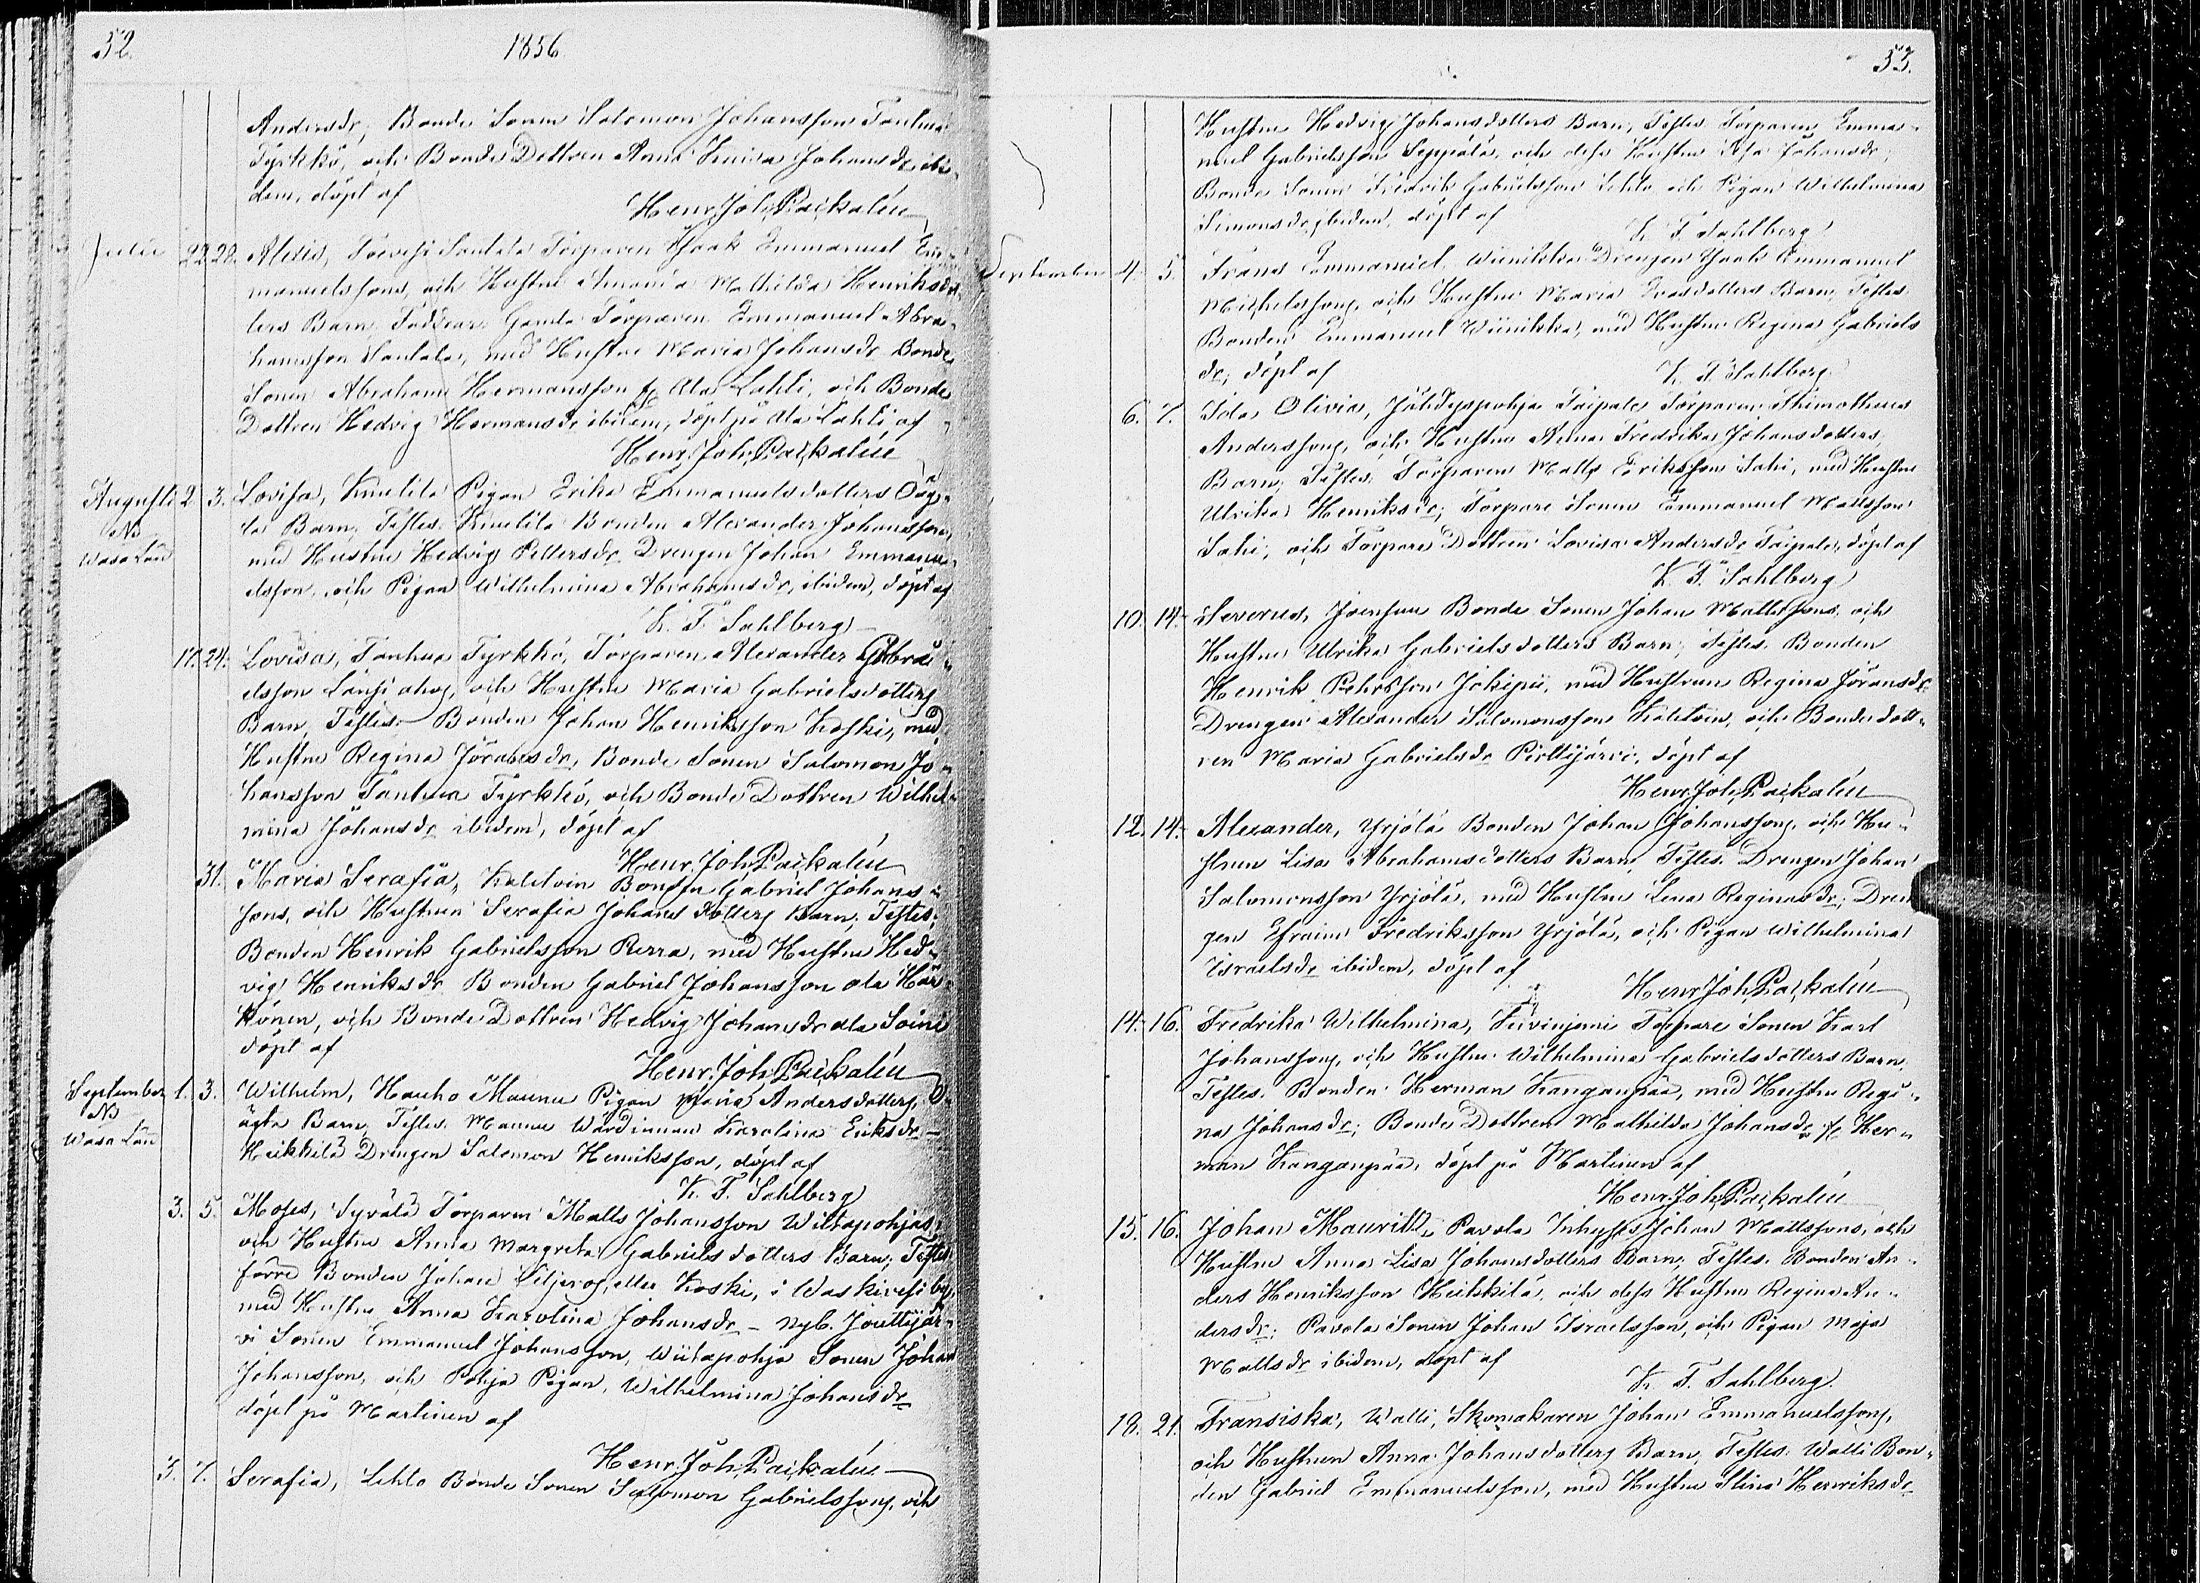 52.
1856.
Andersdr, Bonde Sonen Salomon Johansson Tanhua
Tyrkkö, och Bonde Dottren Anna Lovisa Johansdr ibi-
dem, döpt af
Henr. Joh. Packalén
Julii 22. 28. Alexis, Santala Torparen Isaak Emmanuel Em-
manuelssons, och Hustrun Amanda Mathilda Henriksdot-
ters Barn. Faddrar: Gamla Torparen Emmanuel Abra-
hamsson Santala, med Hustru Maria Johansdr Bonde
Sonen Abraham Hermansson fr. Ala Lahti, och Bonde
Dottren Hedvig Hermansdr ibidem, döpt på Ala Lahti af
Henr. Joh. Packalén
Augusti 2. 3. Lovisa, Pigan Erika Emmanuelsdotters Oäg-
NB
Wasa Län
ta Barn; Testes: Bonden Alexander Johansson,
med Hustru Hedvig Pettersdr Drengen Johan Emmanu-
elsson, och Pigan Wilhelmina Abrahamsdr, ibidem, döpt af
K. F. Sahlberg
17. 24. Lovisa, Tanhua Tyrkkö, Torparen Alexander Gabri-
elsson Länsi ahos, och Hustru Maria Gabrielsdotters
Barn, Testes: Bonden Johan Henriksson Koski, med
Hustru Regina Jöransdr, Bonde Sonen Salomon Jo-
hansson Tanhua Tyrkkö, och Bonde Dottren Wilhel-
mina Johansdr ibidem, döpt af
Henr. Joh. Packalén
31. Maria Serafia, Kaletoin Bonden Gabriel Johans-
sons, och Hustrun Serafia Johansdotters Barn; Testes:
Bonden Henrik Gabrielsson Perra, med Hustru Hed-
vig Henriksdr Bonden Gabriel Johansson ala Här-
könen, och Bonde Dottren Hedvig Johansdr ala Soini
döpt af
Henr. Joh. Packalén
September 1. 3. Wilhelm, Hauho Maunu Pigan Maria Andersdotters, O-
NB
Wasa Län
ägta Barn, Testes: Maunu Wärdinnan Karolina Eriksdr
Heikkilä Drengen Salomon Henriksson, döpt af
K. F. Sahlberg
3. 5. Moses, Syvälä Torparen Matts Johansson Wiitapohjas,
och Hustru Anna Margreta Gabrielsdotters Barn; Testes:
förre Bonden Johan Siljeros, eller Koski, i Waskivesi by,
med Hustru Anna Karolina Johansdr - Nyb. Jouttijär-
vi Sonen Emmanuel Johansson, Wiitapohja Sonen Johan
Johansson, och Pohja Pigan, Wilhelmina Johansdr
döpt på Martinen af
Henr. Joh. Packalén
3. 7. Serafia, Lehto Bonde Sonen Salomon Gabrielssons, och
53.
Hustru Hedvig Johansdotters Barn; Testes: Torparen Emma-
nuel Gabrielsson Seppälä, och dess Hustru Johansdr,
Bonde Sonen Fredrik Gabrielsson Lehto och Pigan Wilhelmina
Simonsdr, ibidem, döpt af
K. F. Sahlberg
September 4. 5. Frans Emmanuel, Wiinikka Drengen Isaak Emmanuel
Michelssons, och Hustru Maria Evasdotters Barn; Testes:
Bonden Emmanuel Wiinikka, med Hustru Regina Gabriels
dr, döpt af
K. F. Sahlberg
6. 7. Ida Olivia, Jähdyspohja Taipale Torparen Thimotheus
Anderssons, och Hustru Anna Fredrika Johansdotters,
Barn; Testes: Torparen Matts Eriksson Sahi, med Hustru
Ulrika Henriksdr; Torpare Sonen Emmanuel Mattsson
Sahi, och Torpare Dottren Lovisa Andersdr Taipale, döpt af
K. F. Sahlberg
10. 14. Severus, Joensuu Bonde Sonen Johan Mattssons, och
Hustru Ulrika Gabrielsdotters Barn; Testes: Bonden
Henrik Pehrsson Jokipii, med Hustrun Regina Jöransdr
Drengen Alexander Salomonsson Kaletoin, och Bonde dott-
ren Maria Gabrielsdr Pirttijärvi, döpt af
Henr. Joh. Packalén
12. 14. Alexander, Yrjölä Bonden Johan Johanssons, och Hu-
strun Lisa Abrahamsdotters Barn; Testes: Drengen Johan
Salomonsson Yrjölä, med Hustru Lena Reginasdr; Dren-
gen Efraim Fredriksson Yrjölä, och Pigan Wilhelmina
Israelsdr ibidem, döpt af
Henr. Joh. Packalén
14. 16. Fredrika Wilhelmina, Torpare Sonen Karl
Johanssons, och Hustru Wilhelmina Gabrielsdotters Barn,
Testes: Bonden Herman Kanganpää, med Hustru Regi-
na Johansdr; Bonde Dottren Mathilda Johansdr fr. Her-
man Kanganpää, döpt på Martinen af
Henr. Joh. Packalén
15. 16. Johan Mauritz, Pavola Inhyses Johan Mattssons, och
Hustru Anna Lisa Johansdotters Barn; Testes: Bonden An-
ders Henriksson Heikkilä, och dess Hustru Regina An-
dersdr; Pavola Sonen Johan Israelsson, och Pigan Maja
Mattsdr ibidem, döpt af
K. F. Sahlberg.
18. 21. Fransiska, Walli, Skomakaren Johan Emmanuelssons,
och Hustrun Anna Johansdotters Barn; Testes: Walli Bon-
den Gabriel Emmanuelsson, med Hustru Stina Henriksdr